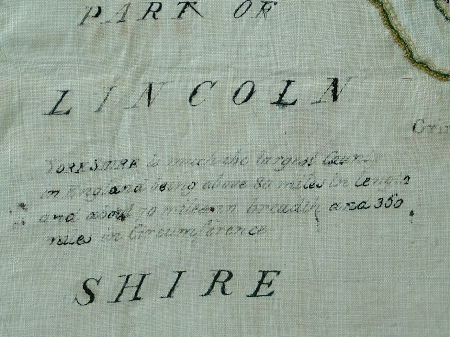 PART OF
LINCOLN
YORKSHIRE is much the largest County
in England being above 80 miles in length
and about 70 miles in breadth and 350
miles in Circumference
SHIRE